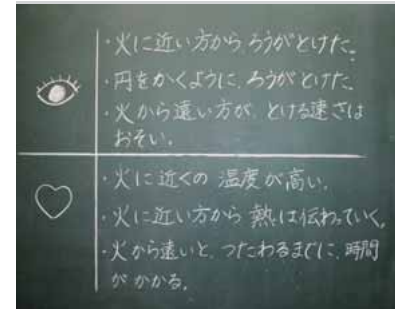 ・火に近い方から、ろうがとけた。
・円をかくように、ろうがとけた。
・火から遠い方が、とける速さは
おそい。
・火に近くの 温度が高い。
・火に近い方から 熱は伝わっていく。
・火から遠いと、つたわるまでに、時間
がかかる。